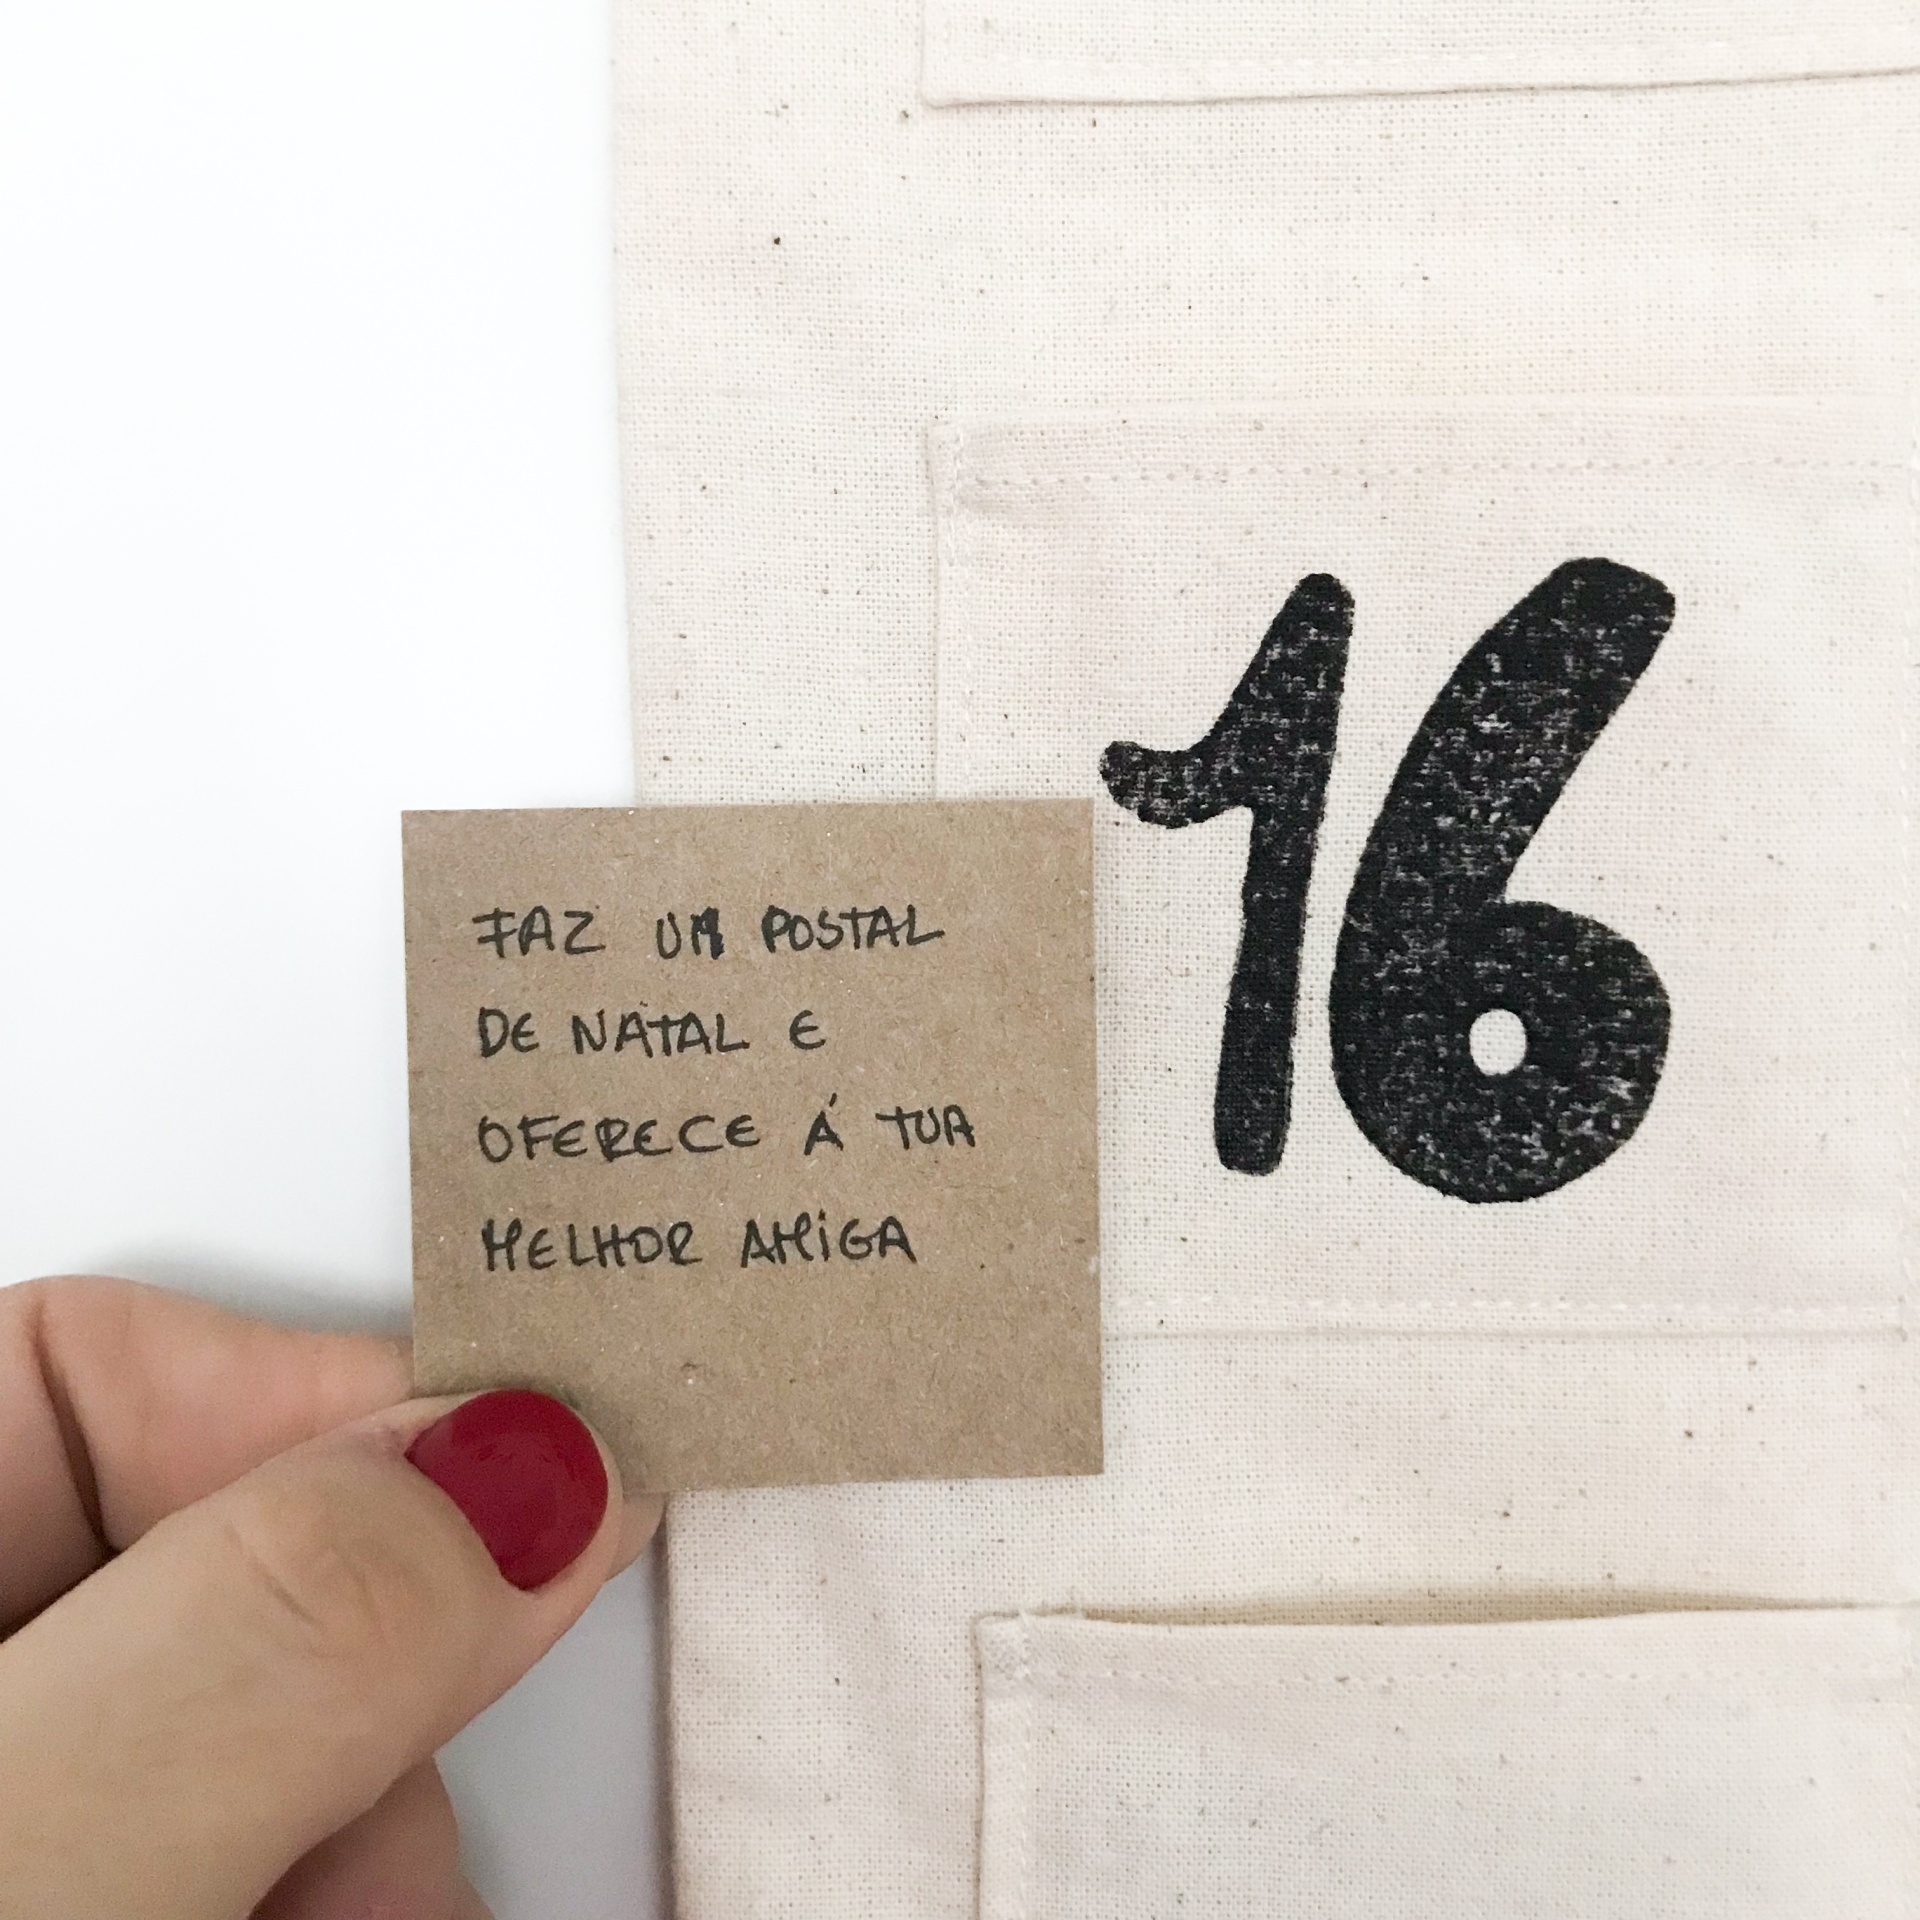 FAZ UM POSTAL
DE NATAL E
OFERECE Á TUA
MELHOR AMiGA
16